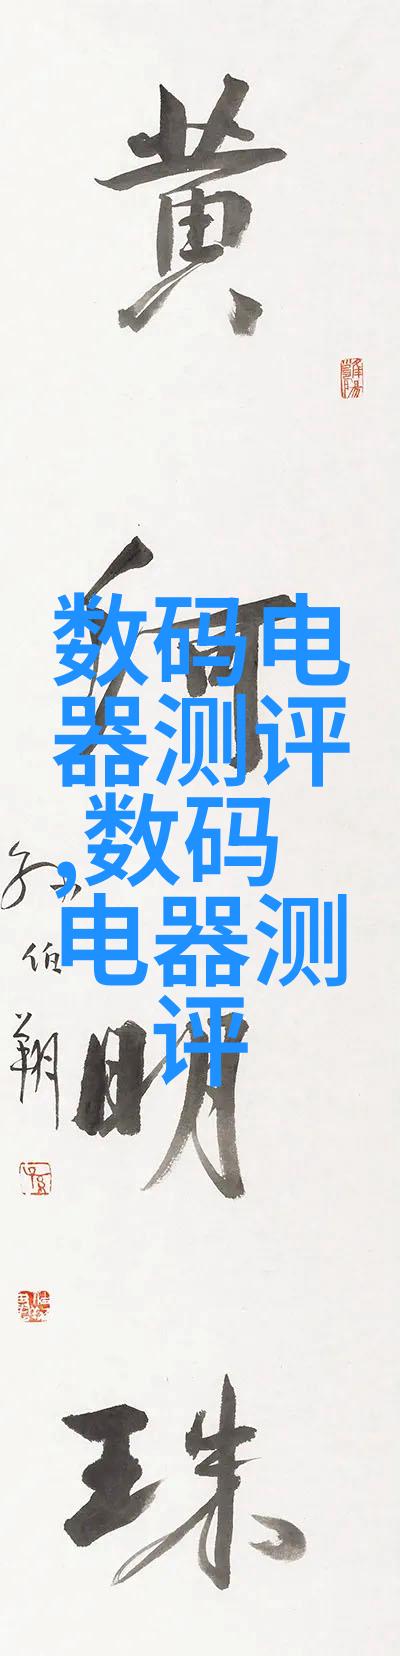 黄
河
明
珠
孙伯翔
数码电
器测评
,数码
电器测
评